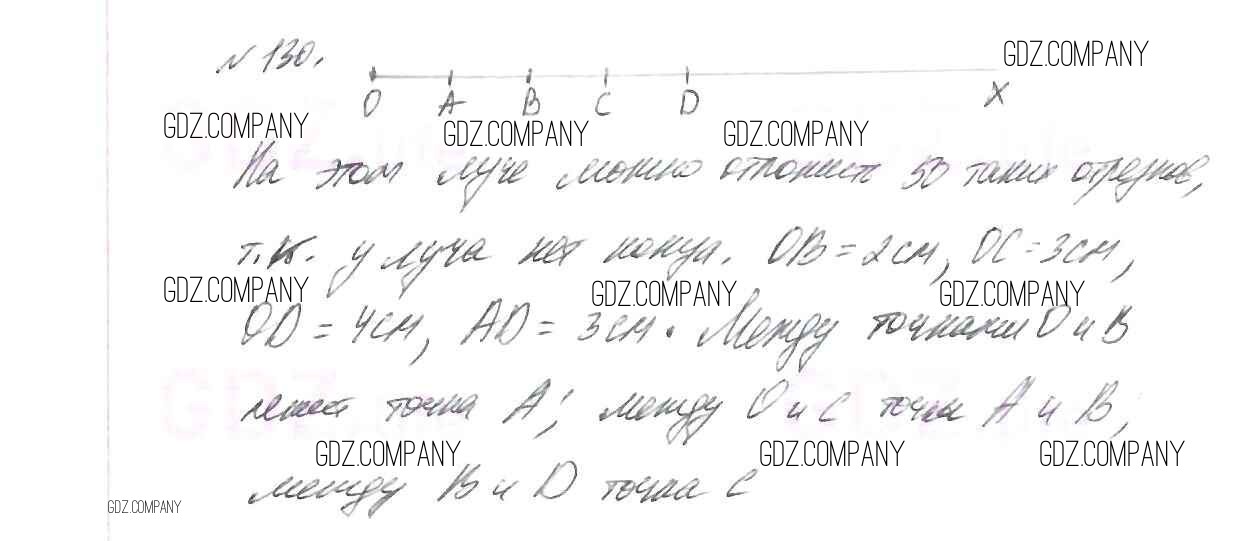 № 130.
GDZ.COMPANY
O A B C D X
GDZ.COMPANY GDZ.COMPANY GDZ.COMPANY
На этом луче можно отложить 50 таких отрезков,
т.к. у луча нет конца. OB = 2см, OC = 3см,
GDZ.COMPANY GDZ.COMPANY GDZ.COMPANY
OD = 4см, AD = 3см. Между точками O и B
лежит точка A; между O и C точки A и B,
GDZ.COMPANY GDZ.COMPANY GDZ.COMPANY
между B и D точка C
GDZ.COMPANY